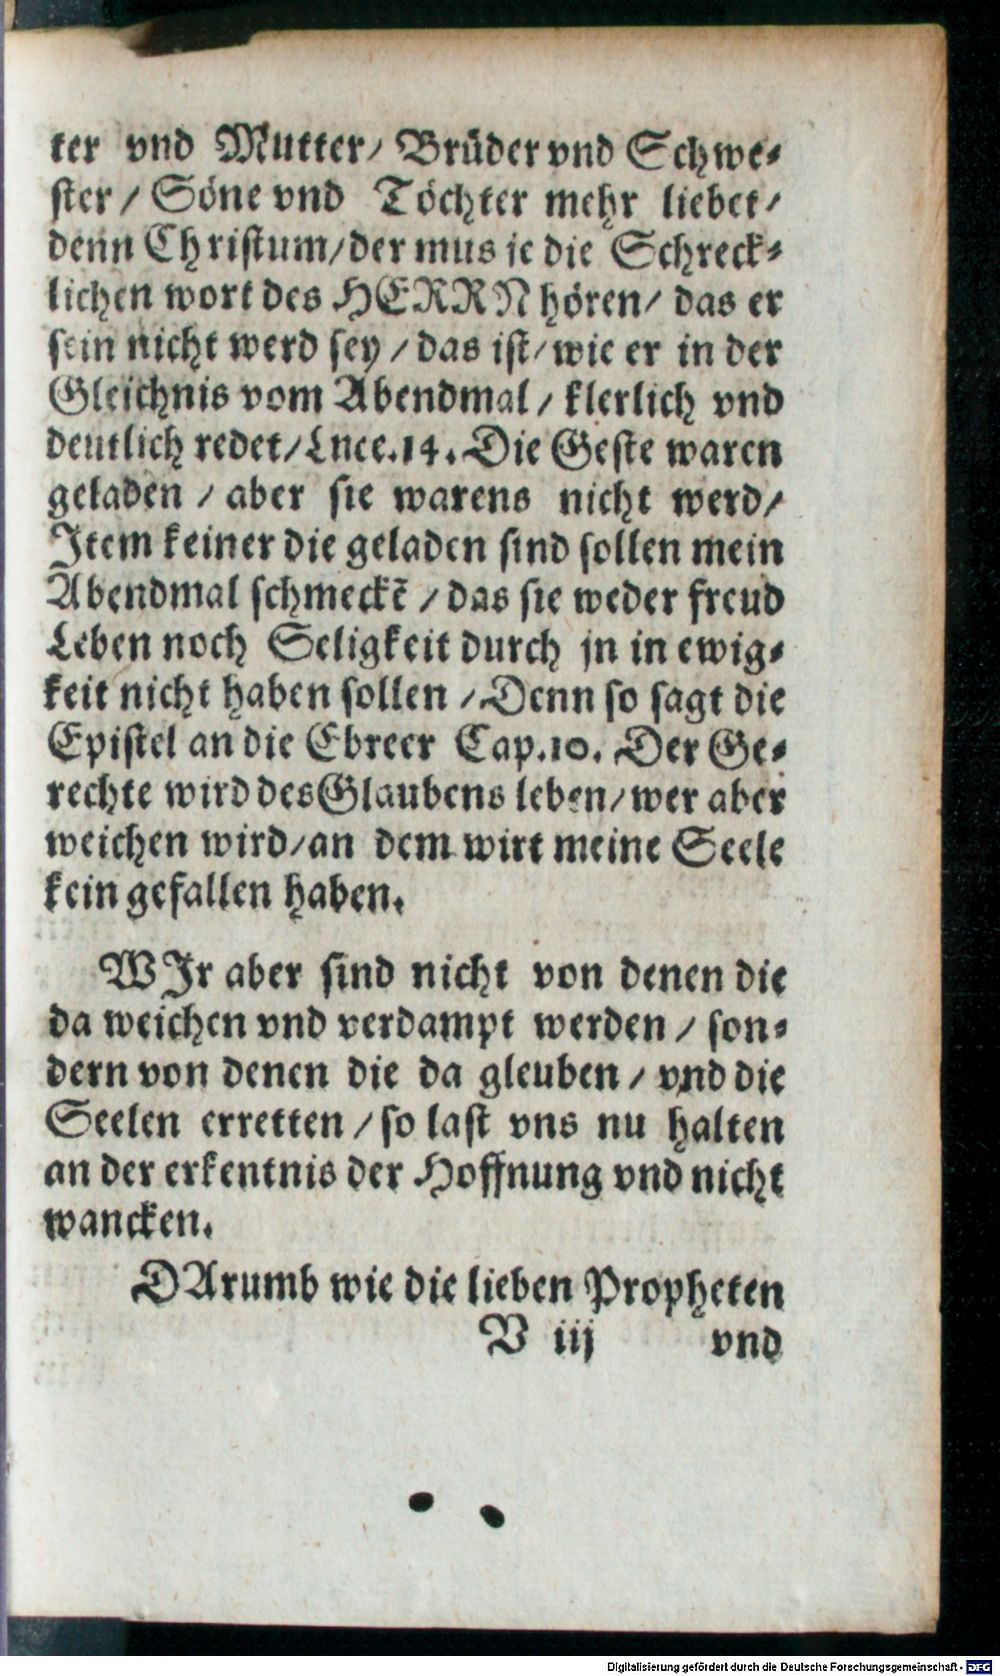 ter vnd Mutter/ Brüder vnd Schwe-
ster / Söne vnd Töchter mehr liebet/
denn Christum/der mus je die Schreck-
lichen wort des HERRN hören/ das er
sein nicht werd sey / das ist/ wie er in der
Gleichnis vom Abendmal / klerlich vnd
deutlich redet/Luce.14. Die Geste waren
geladen / aber sie warens nicht werd/
Item keiner die geladen sind sollen mein
Abendmal schmeckē / das sie weder freud
Leben noch Seligkeit durch jn in ewig-
keit nicht haben sollen / Denn so sagt die
Epistel an die Ebreer Cap.10. Der Ge-
rechte wird des Glaubens leben/ wer aber
weichen wird/an dem wirt meine Seele
kein gefallen haben.
WIr aber sind nicht von denen die
da weichen vnd verdampt werden / son-
dern von denen die da gleuben / vnd die
Seelen erretten / so last vns nu halten
an der erkentnis der Hoffnung vnd nicht
wancken.
DArumb wie die lieben Propheten
V iij vnd
Digitalisierung gefördert durch die Deutsche Forschungsgemeinschaft - DFG